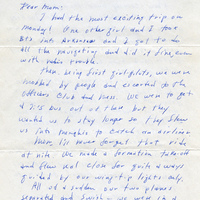 Dear Mom:
I had the most exciting trip on
Monday! One other girl and I took
BT's into Arkansas and I got to do
all the navigating and did it fine, even
with radio trouble.
Then, being first girl pilots, we were
mobbed by people and escorted to the
Officers Club and mess. We were to get
2 5's out at then but they
wanted us to stay longer so they flew
us into Memphis to catch an airliner
here. I'll never forget that ride
at nite. We made a formation takeoff
and flew real close for quite always
guided by our wing-tip lights only.
All of a sudden our two planes
separated and swish - we were in a